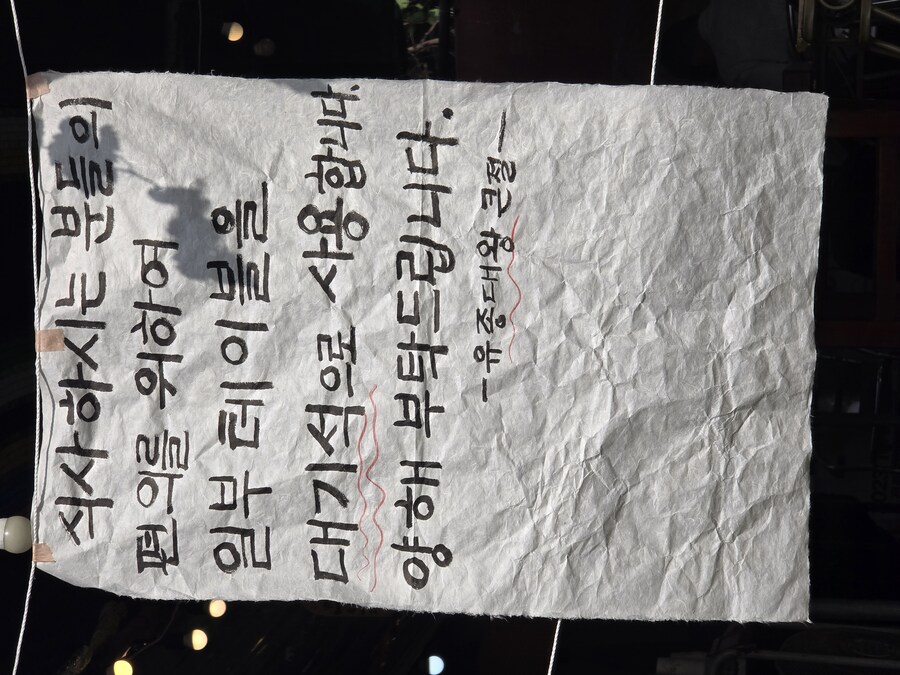 식사하시는 분들의
편의를 위하여
일부 테이블을
대기석으로 사용합니다.
양해 부탁드립니다.
-유종대왕 큰절-